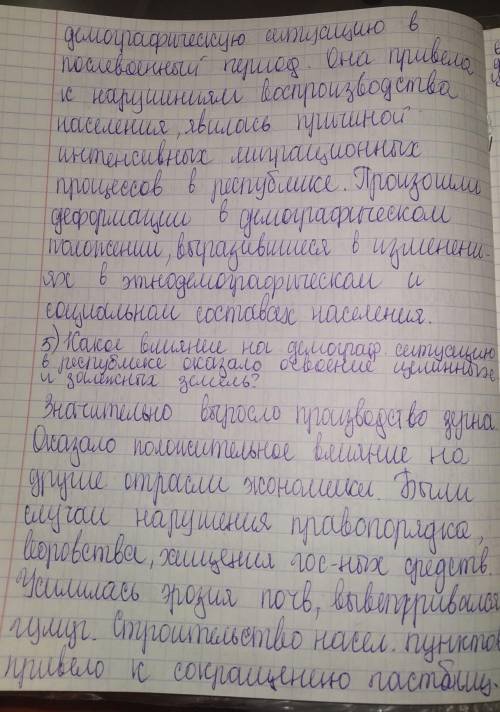 демографическую ситуацию в
послевоенный период. Она привела
к нарушениям воспроизводства
населения, явилась причиной
интенсивных миграционных
процессов в республике. Произошли
деформации в демографическом
положении, выразившиеся в изменени-
ях в этнодемографическом и
социальном составах населения.
5) Какое влияние на демограф. ситуацию
в республике оказало освоение целинных
и залежных земель?
Значительно выросло производство зерна.
Оказало положительное влияние на
другие отрасли экономики. Были
случаи нарушения правопорядка,
воровства, хищения гос-ных средств.
Усилилась эрозия почв, выветривался
гумус. Строительство насел. пунктов
привело к сокращению пастбищ.